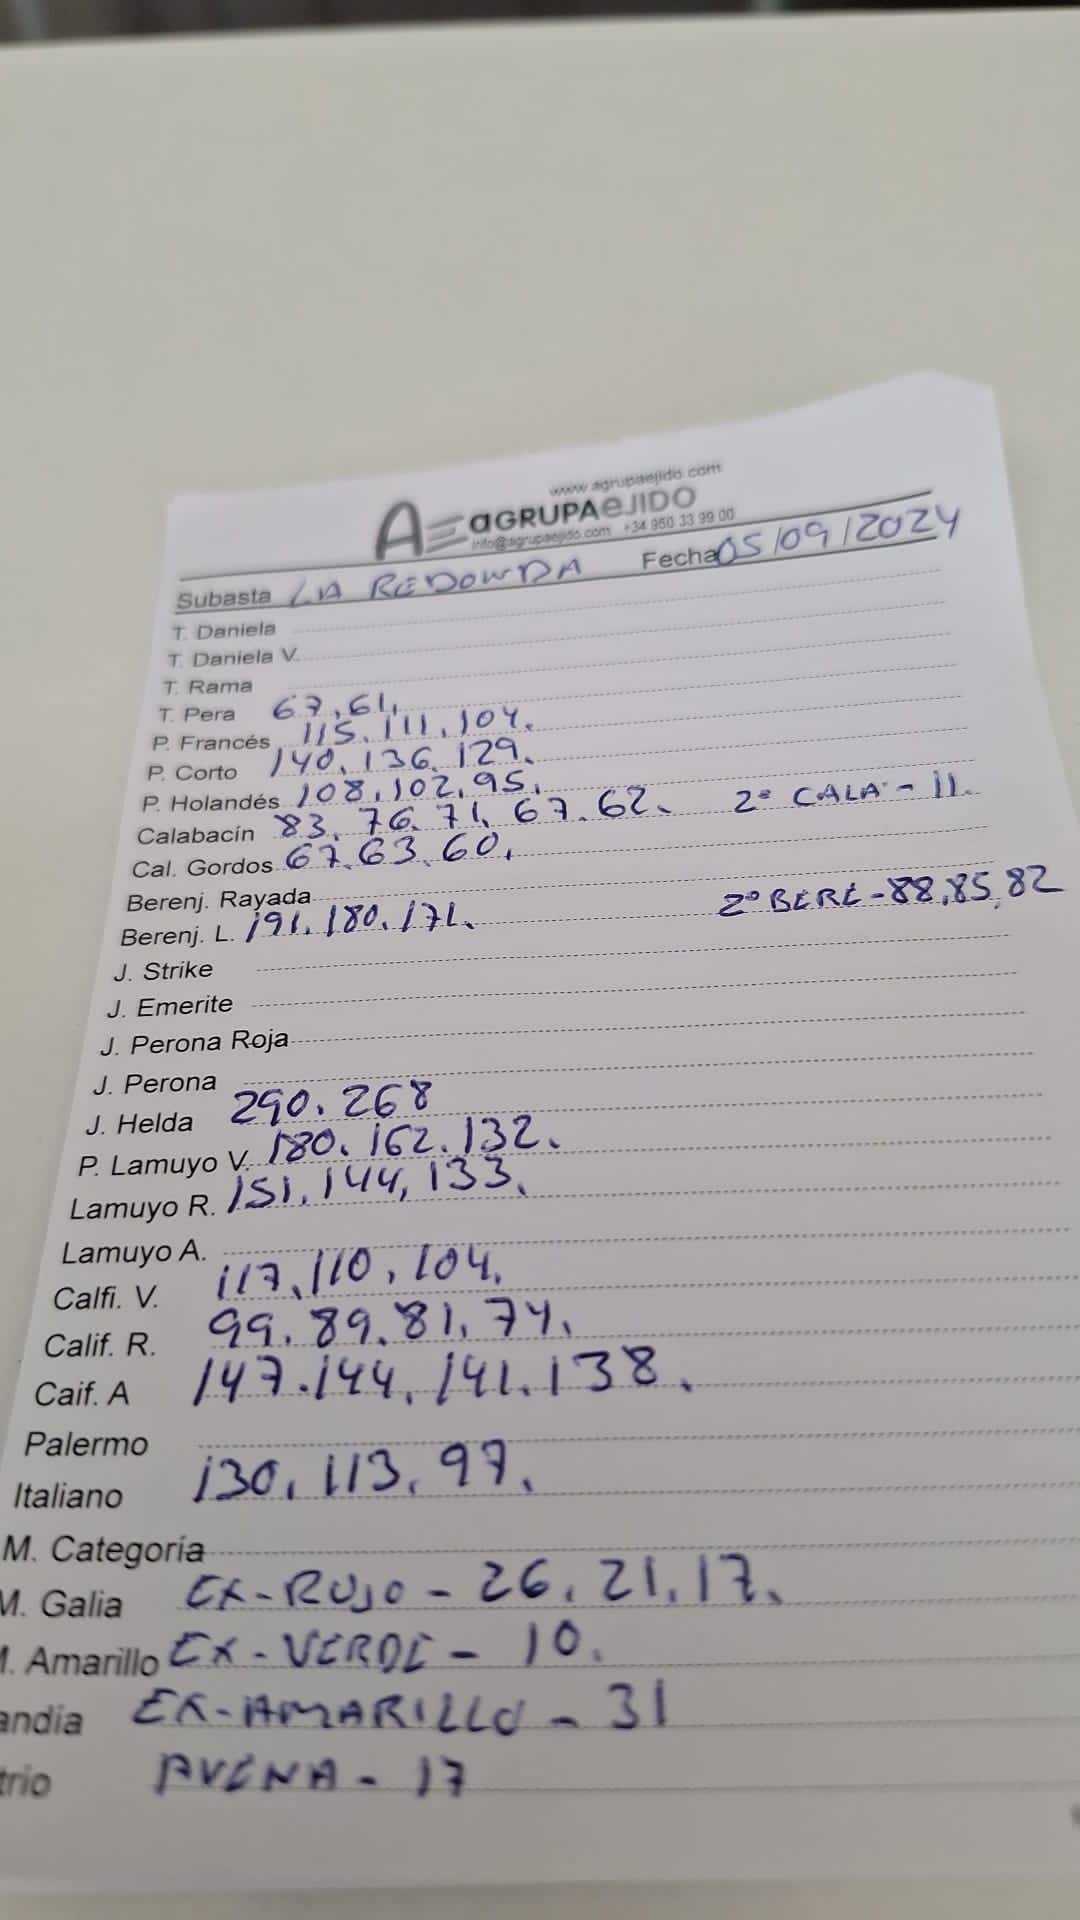 www.agrupaejido.com
AGRUPAEJIDO
info@agrupaejido.com +34 950 33 99 00
Subasta LA REDONDA Fecha 05/09/2024
T. Daniela
T. Daniela V.
T. Rama
T. Pera 67, 61,
P. Francés 115. 111, 104.
P. Corto 140. 136. 129.
P. Holandés 108, 102, 95.
Calabacín 83. 76. 71. 67. 62. 2ª CALA - 11.
Cal. Gordos 67. 63. 60.
Berenj. Rayada
Berenj. L. 191. 180. 171. 2º BERE - 88, 85, 82
J. Strike
J. Emerite
J. Perona Roja
J. Perona
J. Helda 290. 268
P. Lamuyo V. 180. 162. 132.
Lamuyo R. 151. 144, 133.
Lamuyo A.
Calfi. V. 117. 110, 104.
Calif. R. 99. 89. 81. 74.
Caif. A 147. 144. 141. 138.
Palermo
Italiano 130, 113. 97.
M. Categoría
M. Galia EX-ROJO - 26. 21. 17.
M. Amarillo EX-VERDE - 10.
andia EX-AMARILLO - 31
trio AVENA - 17